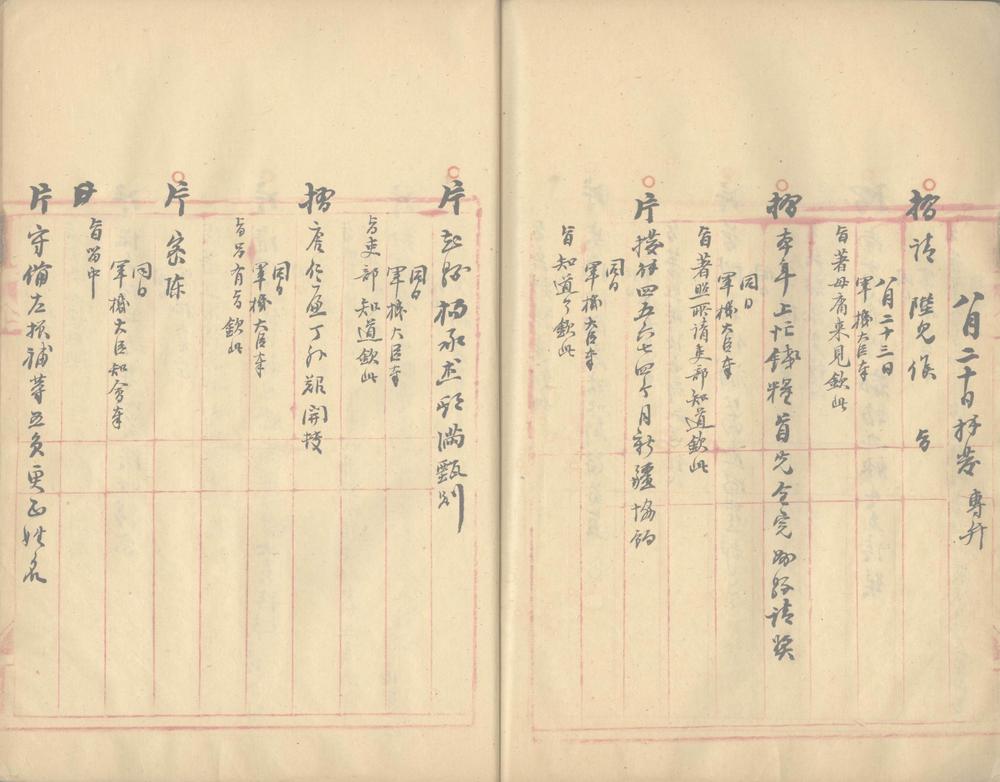 八月二十日拜發 專弁
摺 請 陛見 候 旨
八月二十三日
軍機大臣奉
旨著毋庸來見欽此
摺 本年上忙錢糧首先全完 請獎
同日
軍機大臣奉
旨著照所請吏部知道欽此
片 撥解四五六七四个月新疆協餉
同日
軍機大臣奉
旨知道了欽此
片 期滿甄別
同日
軍機大臣奉
旨吏部知道欽此
摺 丁外艱開技
同日
軍機大臣奉
旨另有旨欽此
片 密陳
同日
軍機大臣知會奉
旨留中
片 守備左損補等五員更正姓名